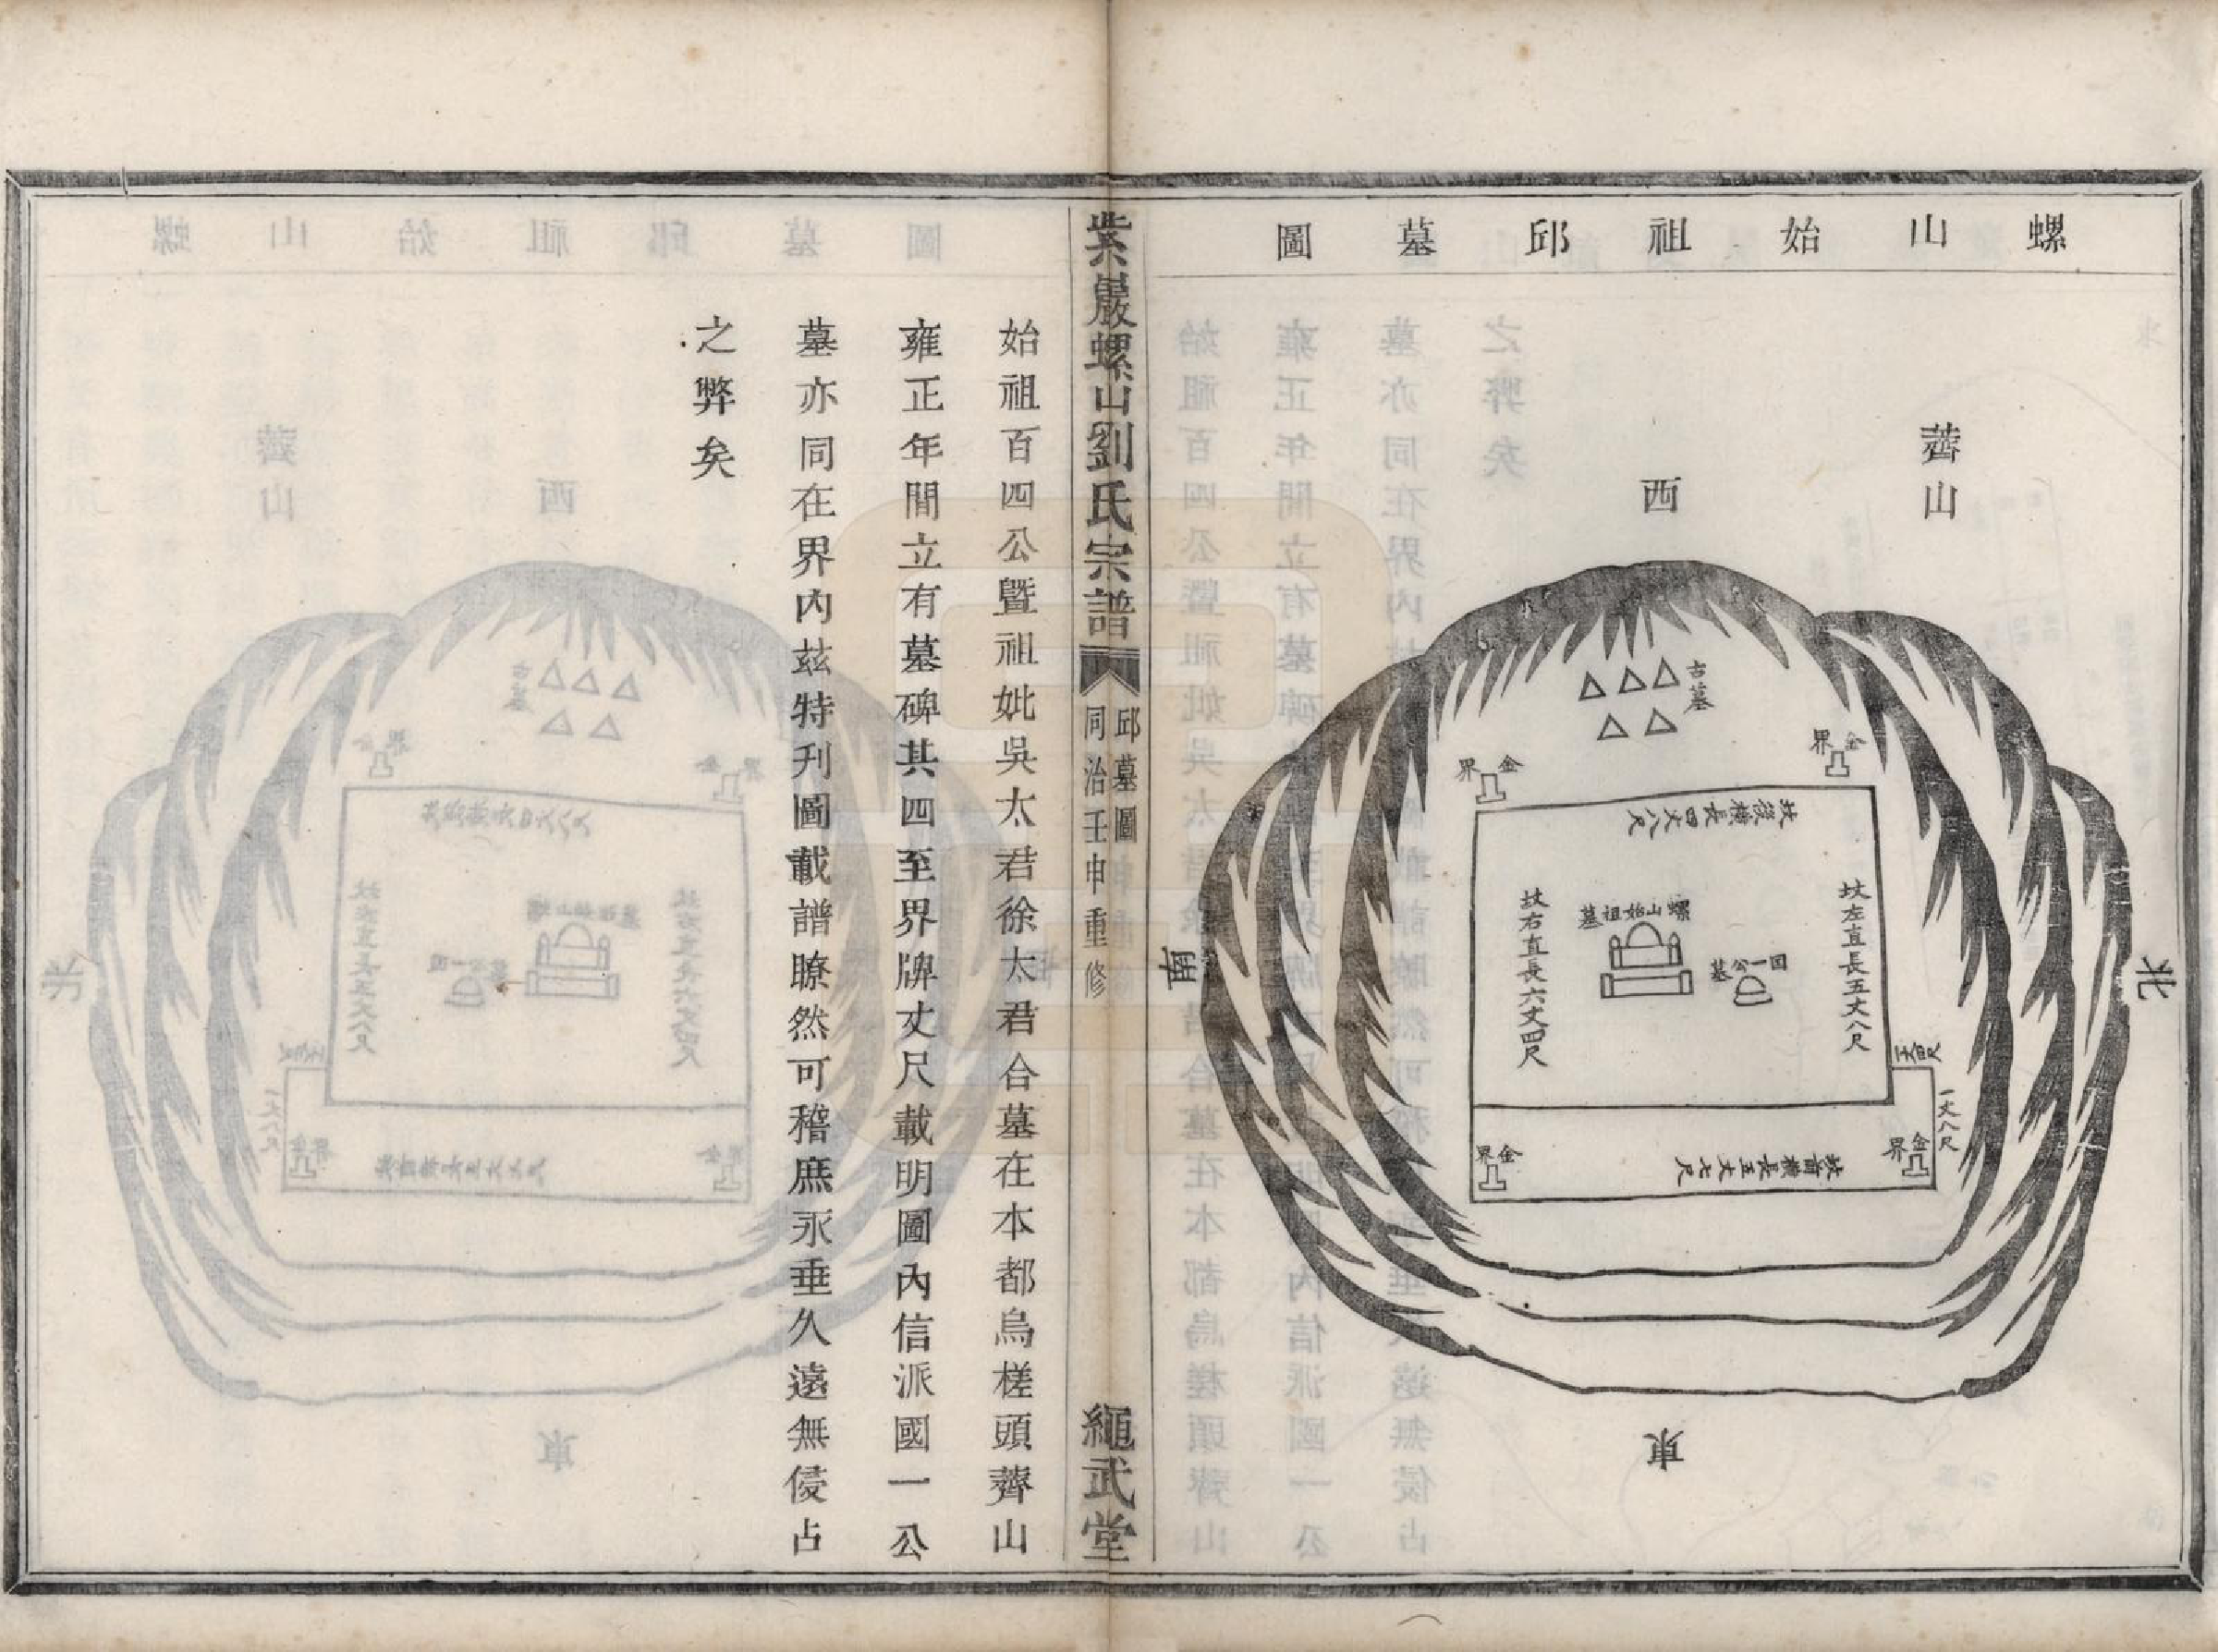 螺山始祖邱墓圖
薺山
西
北
南
東
古墓
金界
金界
坟後橫長四丈八尺
坟左直長五丈八尺
坟右直長六丈四尺
螺山始祖墓
國一公墓
一丈八尺
金界
金界
坟首橫長五丈七尺
紫巖螺山劉氏宗譜
邱墓圖
同治壬申重修
繩武堂
始祖百四公暨祖妣吳太君徐太君合墓在本都烏槎頭薺山
雍正年間立有墓碑其四至界牌丈尺載明圖內信派國一公
墓亦同在界內茲特刋圖載譜瞭然可稽庶永垂久遠無侵占
之弊矣